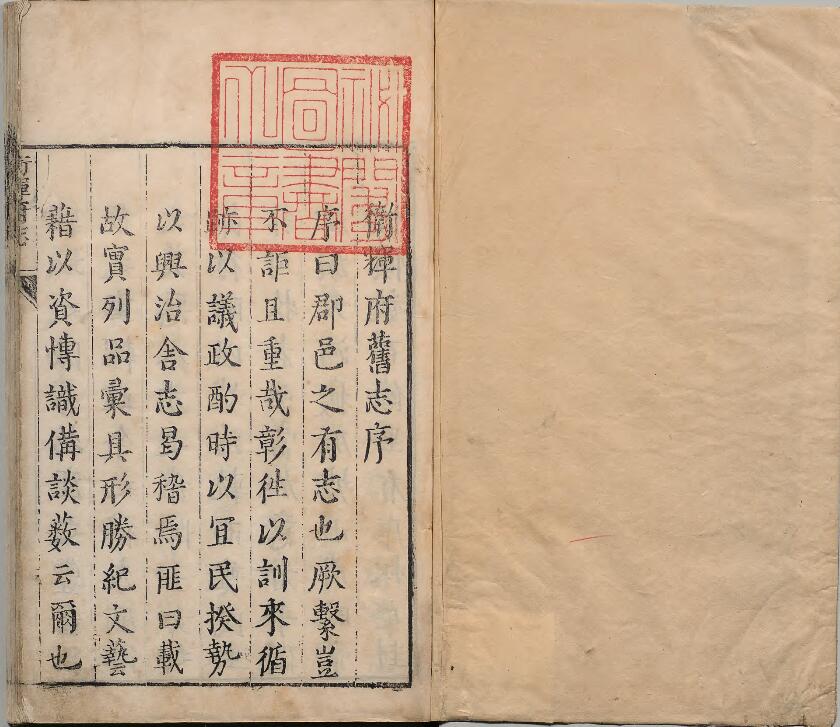 衛輝府舊志序
序曰郡邑之有志也厥繫豈
不詎且重哉彰徃以訓來循
跡以議政酌時以冝民揆勢
以興治舍志曷稽焉匪曰載
故實列品彙具形勝紀文藝
藉以資愽識備談薮云爾也
衛輝府志